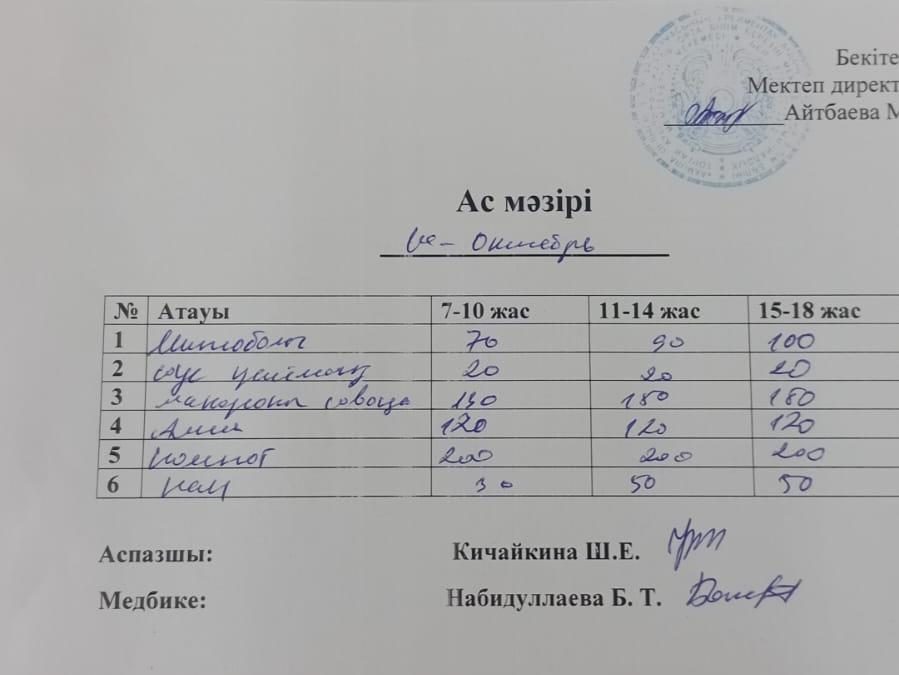 Бекіте
Мектеп директ
Айтбаева М
Ас мәзірі
Октябрь
№ Атауы 7-10 жас 11-14 жас 15-18 жас
1 Митоболы 70 90 100
2 соус 20 20 20
3 макароны 130 180 180
4 120 120 120
5 компот 200 200 200
6 нан 30 50 50
Аспазшы: Кичайкина Ш.Е.
Медбике: Набидуллаева Б. Т.